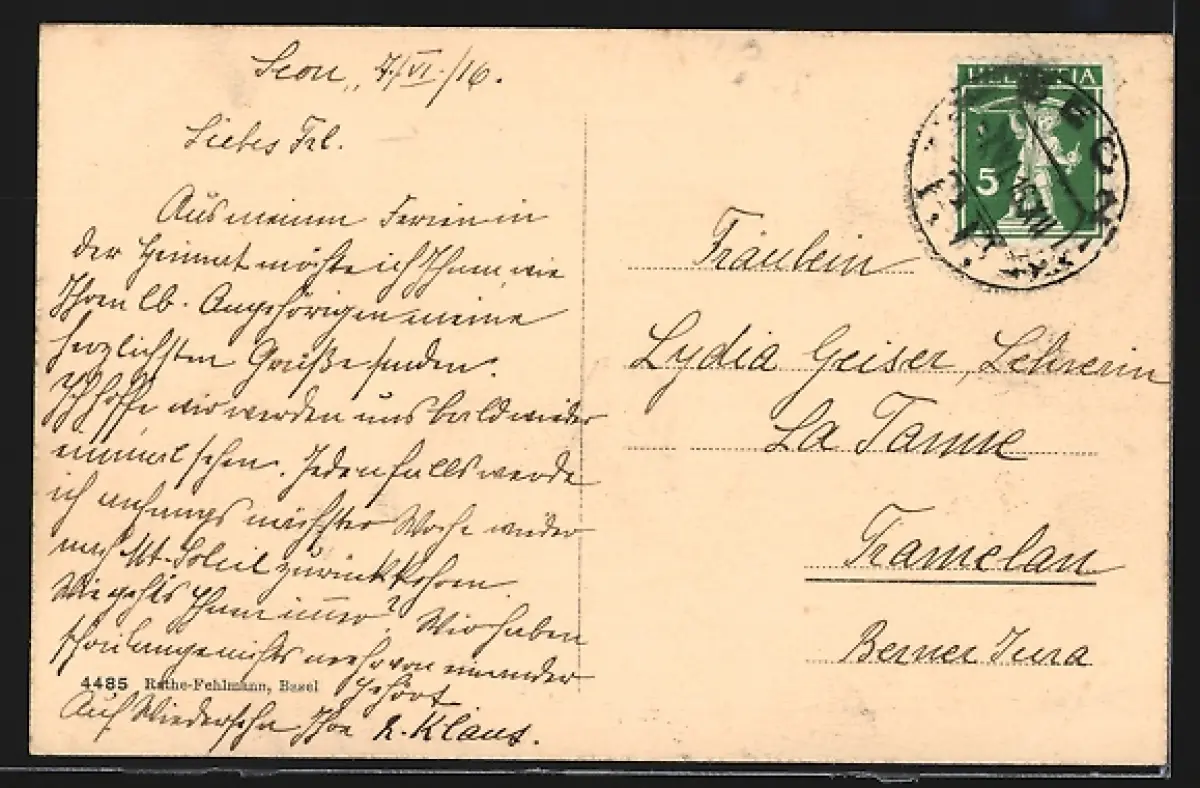 Seon, 7./VI./16.
Liebes Frl.
Aus meinen Ferien in
der Heimat möchte ich Ihnen wie
Ihren lb. Angehörigen meine
herzlichsten Grüße senden.
Ich hoffe wir werden uns bald wieder
einmal sehen. Jedenfalls werde
ich anfangs nächster Woche wieder
nach Mt-Soleil zurückkehren.
Wie geht's Ihnen immer? Wir haben
schon lange nichts mehr von einander
gehört
Auf Wiedersehn Ihr L. Klaus.
4485 Rathe-Fehlmann, Basel
HELVETIA
5
SEON
Fräulein
Lydia Geiser, Lehrerin
La Tanne
Tramelan
Berner Jura